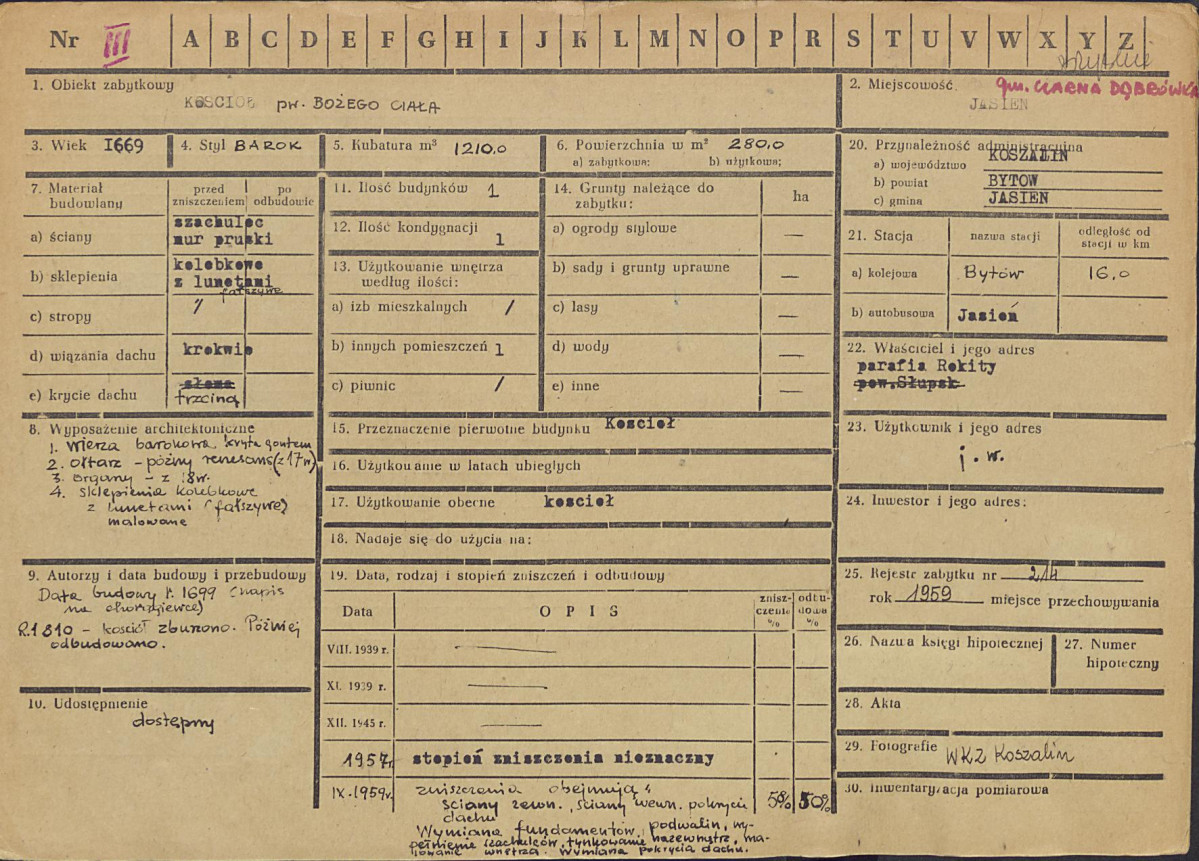 Nr III A B C D E F G H I J K L M N O P R S T U V W X Y Z
1. Obiekt zabytkowy
KOSCIOŁ pw. BOŻEGO CIAŁA
2. Miejscowość gm. CZARNA DĄBRÓWKA
JASIEN
3. Wiek 1669
4. Styl BAROK
5. Kubatura m³ 1210,0
6. Powierzchnia w m² 280,0
a) zabytkowa: b) użytkowa:
7. Materiał budowlany
przed zniszczeniem
po odbudowie
a) ściany
szachulec
mur pruski
b) sklepienia
kolebkowe
z lunetami
fałszywe
c) stropy /
d) wiązania dachu krokwie
e) krycie dachu słoma
trzciną
8. Wyposażenie architektoniczne
1. Wieża barokowa, kryta gontem
2. ołtarz - późny renesans (z 17 w)
3. organy - z 18w.
4. sklepienia kolebkowe
z lunetami (fałszywe)
malowane
9. Autorzy i data budowy i przebudowy
Data budowy r. 1699 (napis
na chorągiewce)
R.1810 - kościół zburzono. Później
odbudowano.
10. Udostępnienie
dostępny
11. Ilość budynków 1
12. Ilość kondygnacji 1
13. Użytkowanie wnętrza
według ilości:
a) izb mieszkalnych /
b) innych pomieszczeń 1
c) piwnic /
14. Grunty należące do
zabytku:
ha
a) ogrody stylowe —
b) sady i grunty uprawne —
c) lasy —
d) wody —
e) inne —
15. Przeznaczenie pierwotne budynku Kościoł
16. Użytkowanie w latach ubiegłych
17. Użytkowanie obecne kościoł
18. Nadaje się do użycia na:
19. Data, rodzaj i stopień zniszczeń i odbudowy
Data OPIS
znisz-
czenie
%
odbu-
dowa
%
VIII. 1939 r. —
XI. 1939 r. —
XII. 1945 r. —
1957r. stopień zniszczenia nieznaczny
IX.1959r. zniszczenia obejmują
ściany zewn., ściany wewn. pokrycie
dachu
5% 50%
Wymiana fundamentów, podwalin, wy-
pełnienie szachulców, tynkowanie nazewnątrz, ma-
lowanie wnętrza. Wymiana pokrycia dachu.
20. Przynależność administracyjna
a) województwo KOSZALIN
b) powiat BYTOW
c) gmina JASIEN
21. Stacja
nazwa stacji
odległość od
stacji w km
a) kolejowa Bytów 16,0
b) autobusowa Jasień
22. Właściciel i jego adres
parafia Rokity
pow. Słupsk
23. Użytkownik i jego adres
j. w.
24. Inwestor i jego adres:
25. Rejestr zabytku nr 214
rok 1959 miejsce przechowywania
26. Nazwa księgi hipotecznej
27. Numer
hipoteczny
28. Akta
29. Fotografie WKZ Koszalin
30. Inwentaryzacja pomiarowa